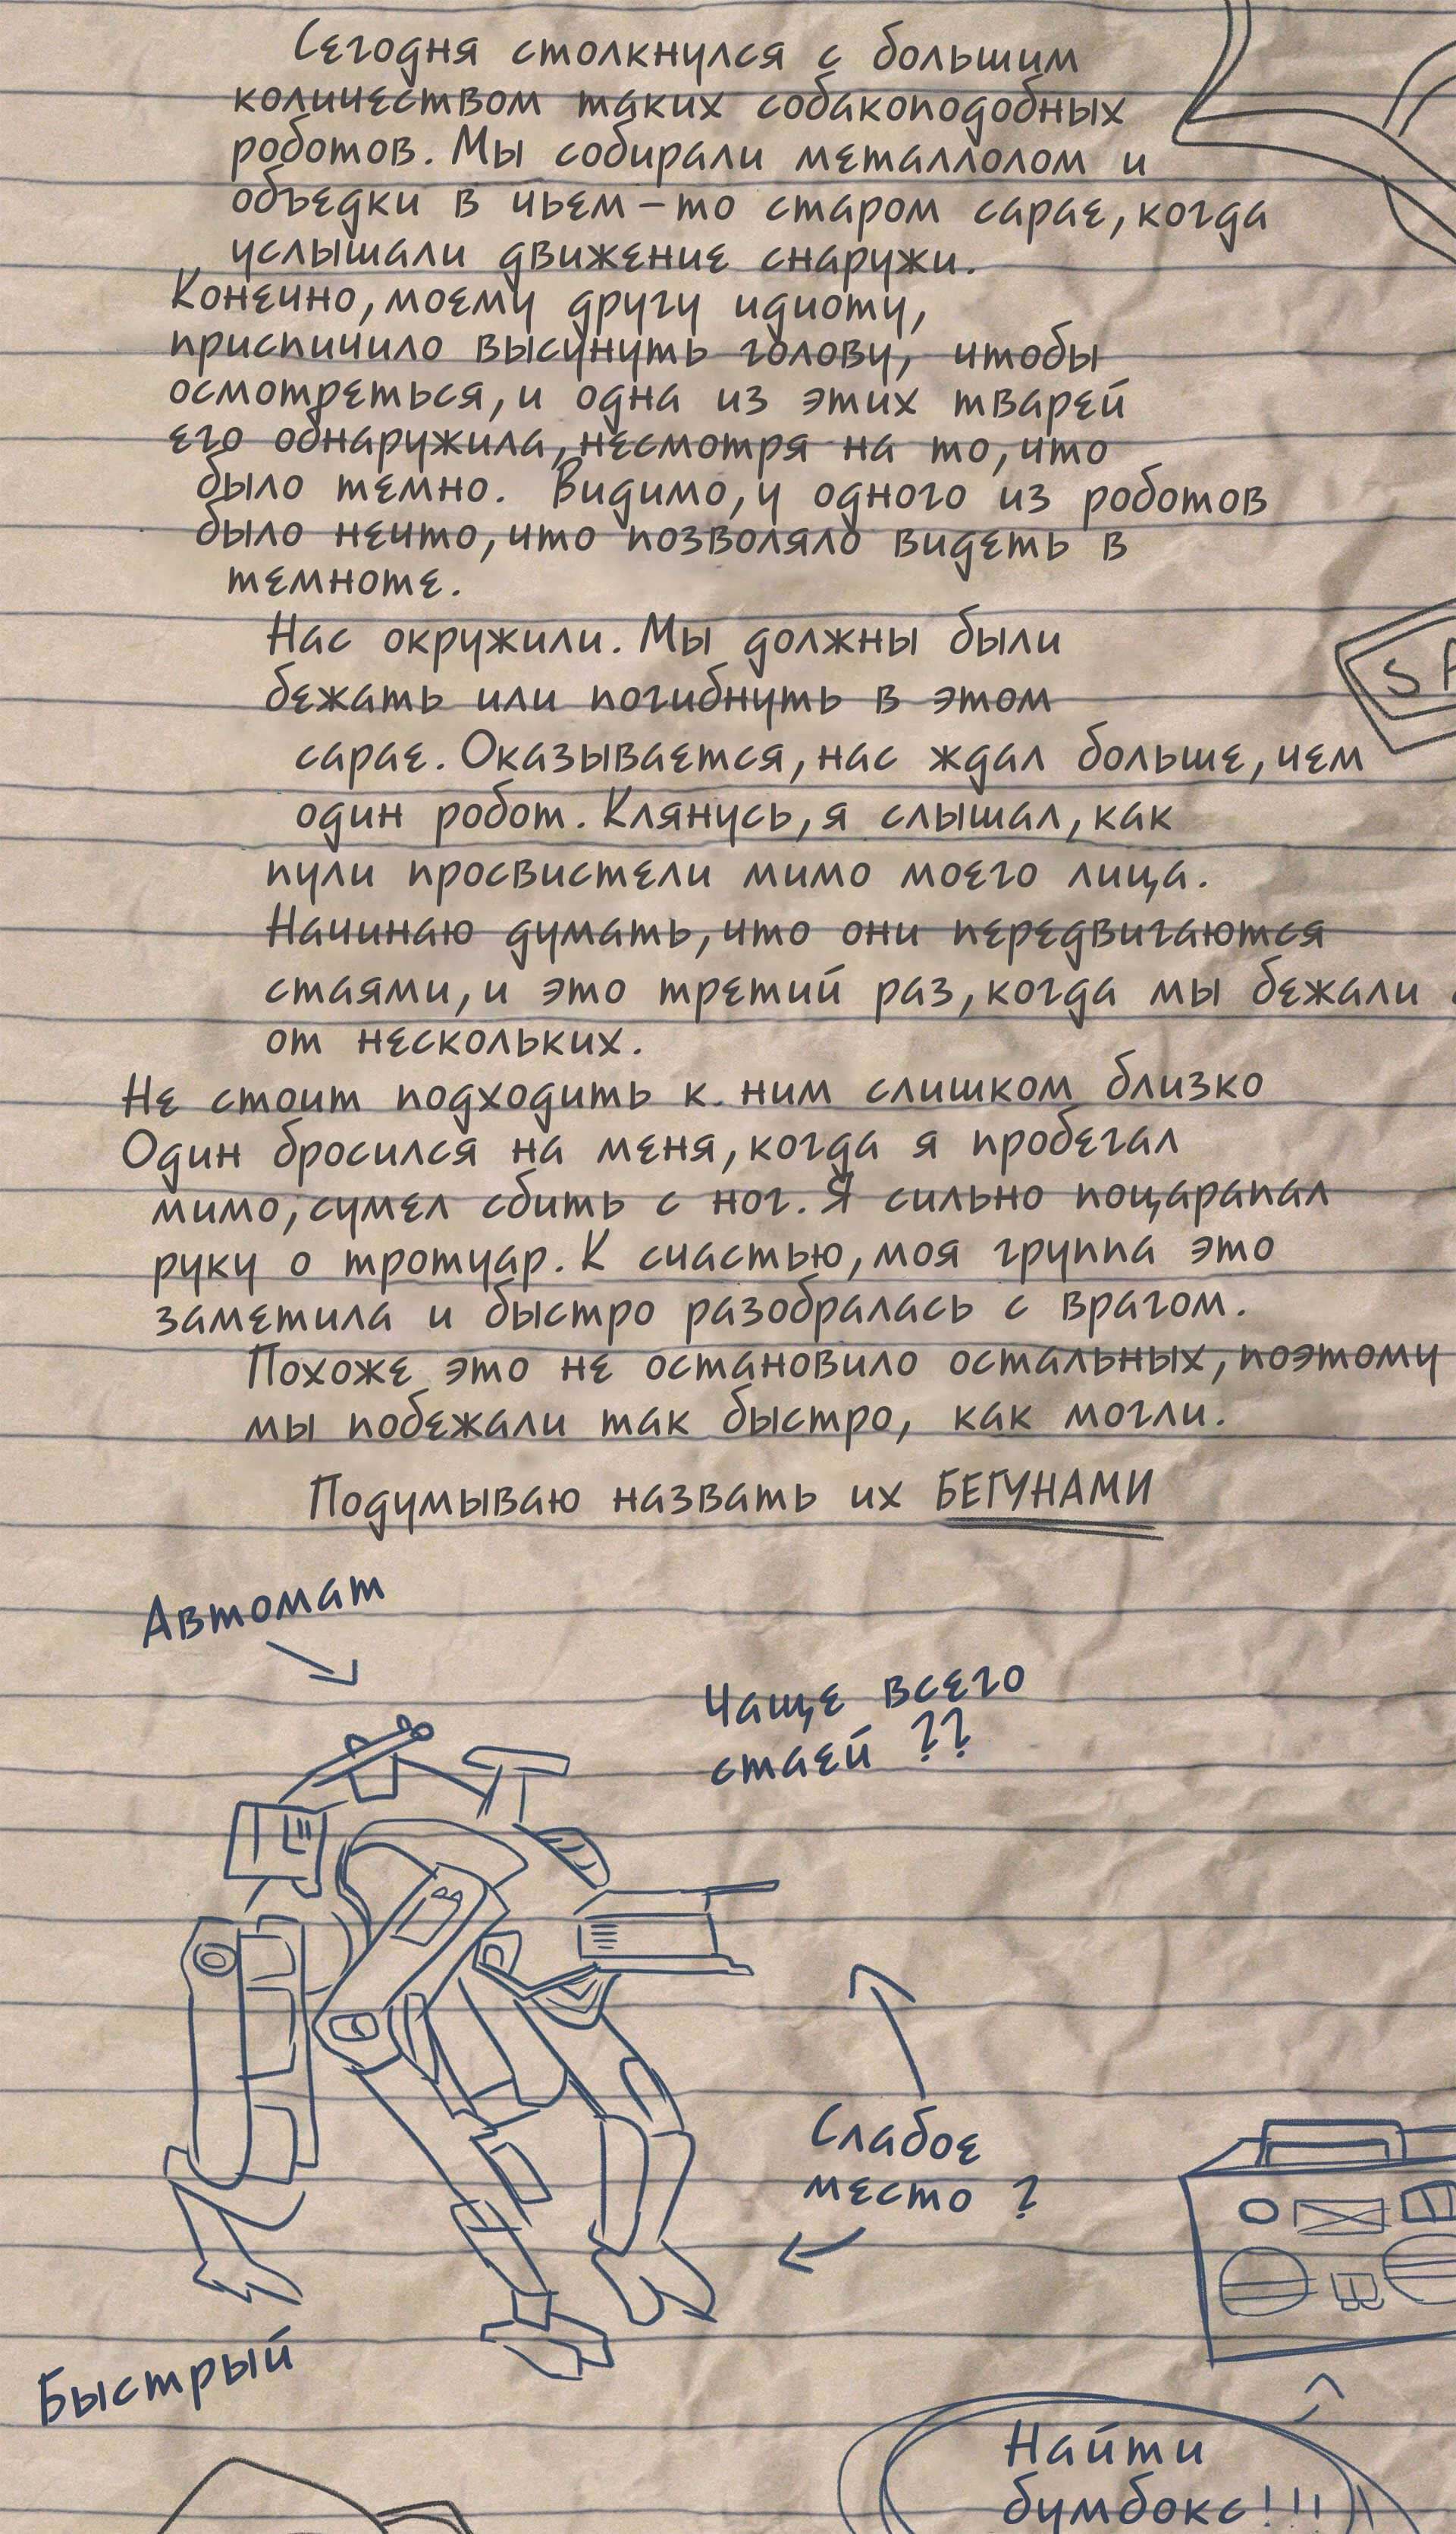 Сегодня столкнулся с большим
количеством таких собакоподобных
роботов. Мы собирали металлолом и
объедки в чьем-то старом сарае, когда
услышали движение снаружи.
Конечно, моему другу идиоту,
приспичило высунуть голову, чтобы
осмотреться, и одна из этих тварей
его обнаружила, несмотря на то, что
было темно. Видимо, у одного из роботов
было нечто, что позволяло видеть в
темноте.
Нас окружили. Мы должны были
бежать или погибнуть в этом
сарае. Оказывается, нас ждал больше, чем
один робот. Клянусь, я слышал, как
пули просвистели мимо моего лица.
Начинаю думать, что они передвигаются
стаями, и это третий раз, когда мы бежали
от нескольких.
Не стоит подходить к ним слишком близко
Один бросился на меня, когда я пробегал
мимо, сумел сбить с ног. Я сильно поцарапал
руку о тротуар. К счастью, моя группа это
заметила и быстро разобралась с врагом.
Похоже это не остановило остальных, поэтому
мы побежали так быстро, как могли.
Подумываю назвать их БЕГУНАМИ
Автомат
Чаще всего
стаей ??
Слабое
место ?
Быстрый
Найти
бумбокс!!!